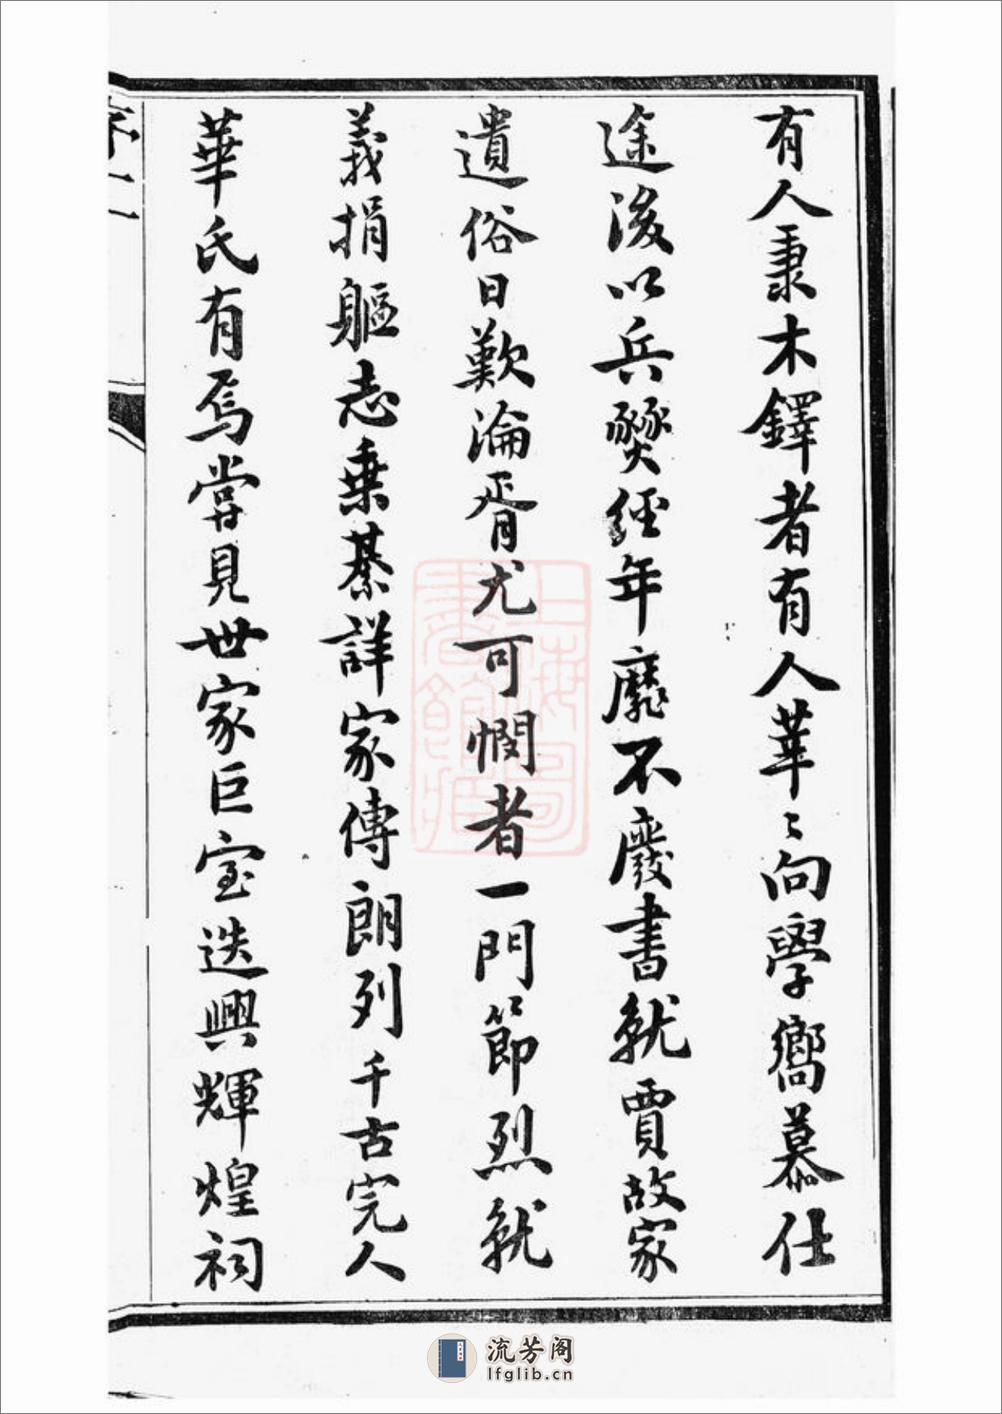 有人秉木鐸者有人莘〻向學嚮慕仕
途後以兵燹經年靡不廢書就賈故家
遺俗日歎淪胥尤可憫者一門節烈就
義捐軀志乘綦詳家傳朗列千古完人
華氏有焉嘗見世家巨室迭興輝煌祠
序
上海圖書館藏
流芳阁
lfglib.cn